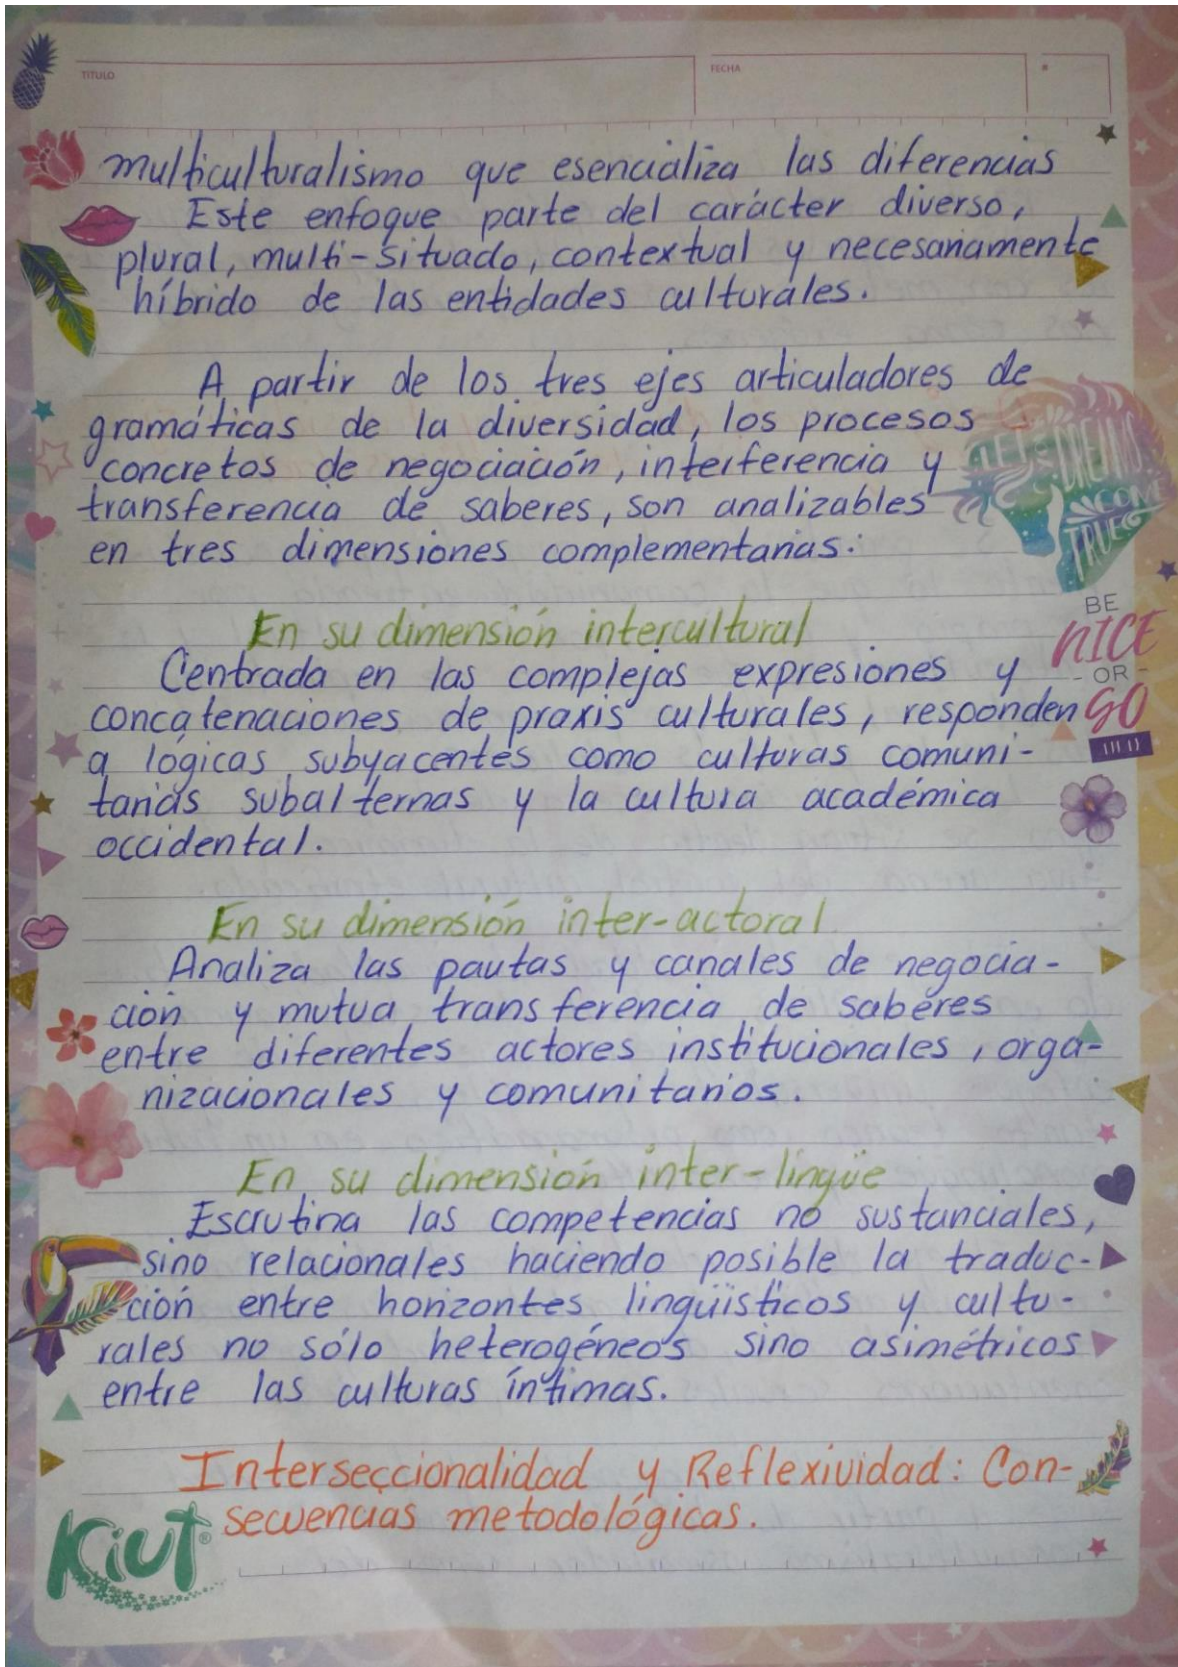 TITULO
FECHA
multiculturalismo que esencializa las diferencias
Este enfoque parte del carácter diverso,
plural, multi-situado, contextual y necesariamente
híbrido de las entidades culturales.
A partir de los tres ejes articuladores de
gramáticas de la diversidad, los procesos
concretos de negociación, interferencia y
transferencia de saberes, son analizables
en tres dimensiones complementarias:
LET'S DREAMS
COME
TRUE
En su dimensión intercultural
BE
NICE
OR
GO
Centrada en las complejas expresiones y
concatenaciones de praxis culturales, responden
a lógicas subyacentes como culturas comuni-
tarias subalternas y la cultura académica
occidental.
En su dimensión inter-actoral
Analiza las pautas y canales de negocia-
ción y mutua transferencia de saberes
entre diferentes actores institucionales, orga-
nizacionales y comunitarios.
En su dimensión inter-lingüe
Escrutina las competencias no sustanciales,
sino relacionales haciendo posible la traduc-
ción entre horizontes lingüísticos y cultu-
rales no sólo heterogéneos sino asimétricos
entre las culturas íntimas.
Interseccionalidad y Reflexividad: Con-
secuencias metodológicas.
Kiut®